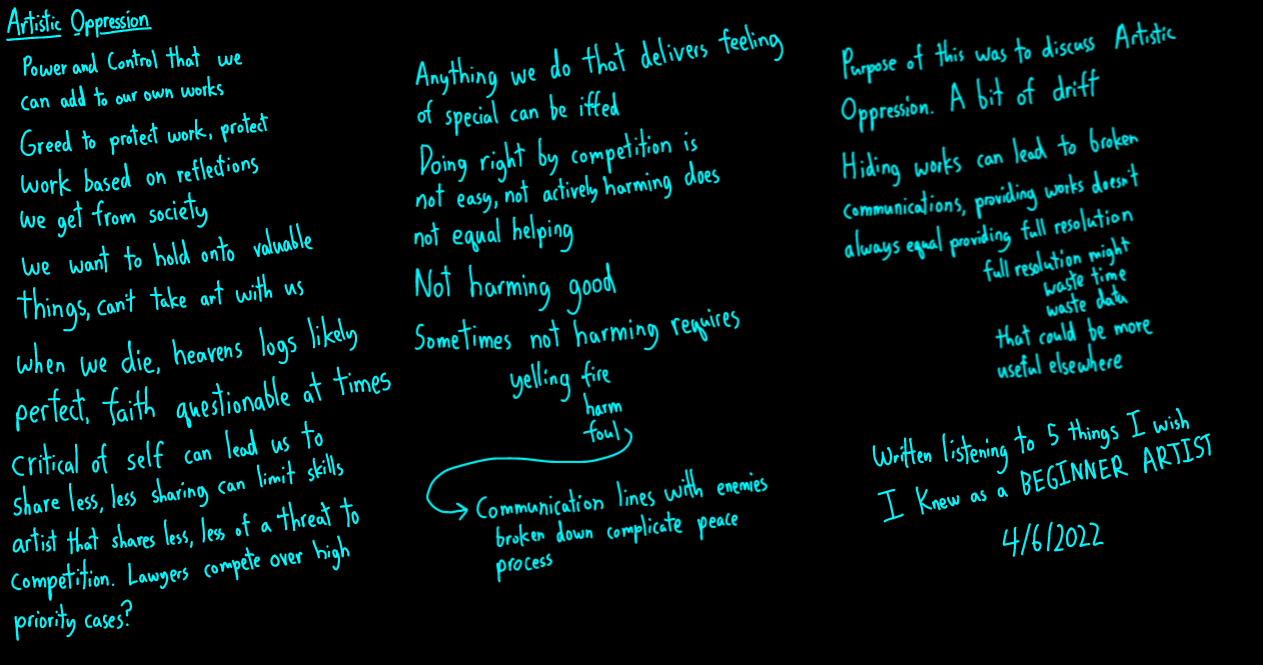 Artistic Oppression
Power and Control that we
can add to our own works
Greed to protect work, protect
work based on reflections
we get from society
we want to hold onto valuable
things, can't take art with us
when we die, heavens logs likely
perfect, faith questionable at times
critical of self can lead us to
share less, less sharing can limit skills
artist that shares less, less of a threat to
competition. Lawyers compete over high
priority cases?
Anything we do that delivers feeling
of special can be iffed
Doing right by competition is
not easy, not actively harming does
not equal helping
Not harming good
Sometimes not harming requires
yelling fire
harm
foul
Communication lines with enemies
broken down complicate peace
process
Purpose of this was to discuss Artistic
Oppression. A bit of drift
Hiding works can lead to broken
communications, providing works doesn't
always equal providing full resolution
full resolution might
waste time
waste data
that could be more
useful elsewhere
Written listening to 5 things I wish
I Knew as a BEGINNER ARTIST
4/6/2022